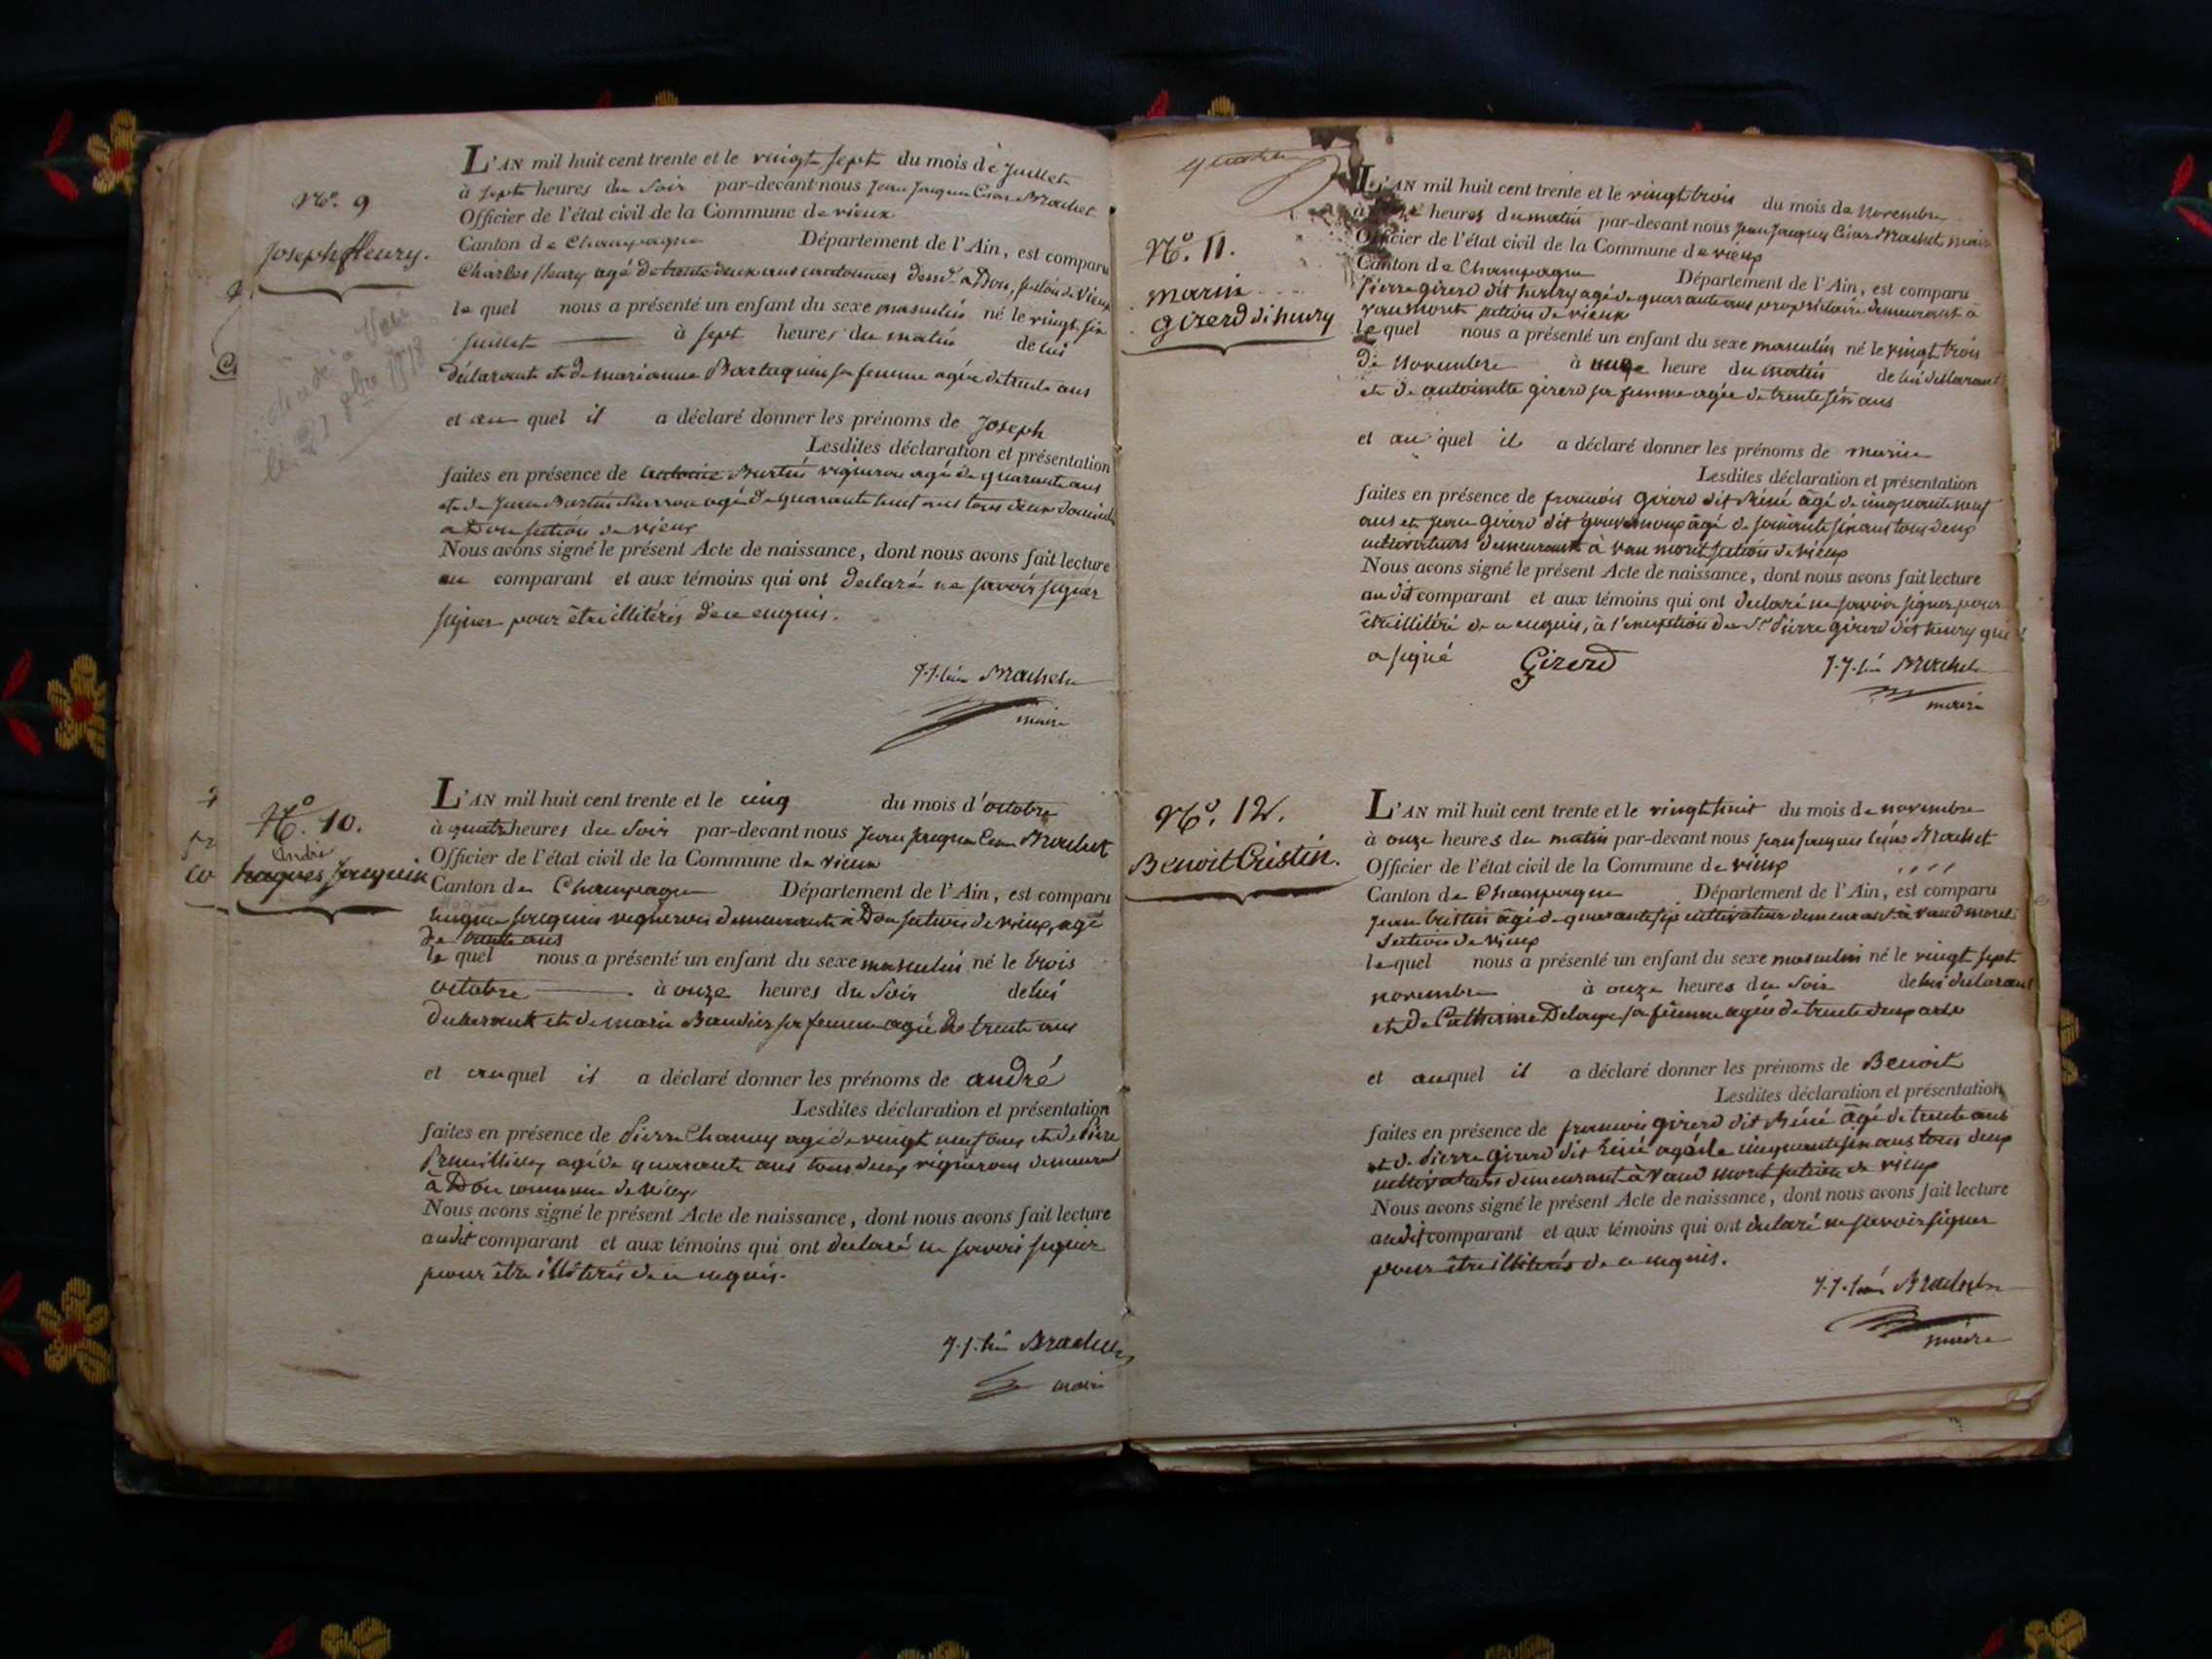 N.º 9
Joseph fleury.
L'AN mil huit cent trente et le vingt sept du mois de Juillet
à sept heures du Soir par-devant nous Jean Jacques César Brachet
Officier de l'état civil de la Commune de vieux
Canton de Champagne Département de l'Ain, est comparu
Charles fleury agé de trente deux ans demt. à Don, section de Vieux
le quel nous a présenté un enfant du sexe masculin né le vingt six
juillet à sept heures du matin de lui
déclarant et de marianne sa femme agée de trente ans
et au quel il a déclaré donner les prénoms de Joseph
Lesdites déclaration et présentation
faites en présence de antoine Burtin vigneron agé de quarante ans
et de Jean Burtin agé de quarante huit ans tous deux
a Don section de vieux
Nous avons signé le présent Acte de naissance, dont nous avons fait lecture
au comparant et aux témoins qui ont declaré ne savoir signer
signer pour être illitérés de ce enquis.
J. J. César Brachet
maire
N.º 10.
André
Jacquin
L'AN mil huit cent trente et le cinq du mois d'octobre
à quatre heures du Soir par-devant nous Jean Jacques César Brachet
Officier de l'état civil de la Commune de vieux
Canton de Champagne Département de l'Ain, est comparu
jacquin vigneron demeurant à Don section de vieux, agé
de trente ans
le quel nous a présenté un enfant du sexe masculin né le trois
octobre à onze heures du Soir de lui
declarant et de marie Baudier sa femme agée de trente ans
et auquel il a déclaré donner les prénoms de andré
Lesdites déclaration et présentation
faites en présence de Pierre Chaney agé de vingt neuf ans et de Pierre
agé de quarante ans tous deux vignerons demeurant
à Don commune de vieux
Nous avons signé le présent Acte de naissance, dont nous avons fait lecture
audit comparant et aux témoins qui ont declaré ne savoir signer
pour être illitérés de ce enquis.
J. J. César Brachet
maire
N.º 11.
marin
Girerd dit henry
L'AN mil huit cent trente et le vingt trois du mois de Novembre
à heures du matin par-devant nous jean jacques César Brachet maire
Officier de l'état civil de la Commune de vieux
Canton de Champagne Département de l'Ain, est comparu
Pierre girerd dit henry agé de quarante ans propriétaire demeurant à
vaumoret section de vieux
le quel nous a présenté un enfant du sexe masculin né le vingt trois
de Novembre à heure du matin de lui déclarant
et de antoinette girerd sa femme agée de trente six ans
et au quel il a déclaré donner les prénoms de marin
Lesdites déclaration et présentation
faites en présence de francois Girerd dit Réné âgé de cinquante neuf
ans et jean girerd dit âgé de soixante six ans tous deux
cultivateurs demeurant à vau moret section de vieux
Nous avons signé le présent Acte de naissance, dont nous avons fait lecture
au dit comparant et aux témoins qui ont declaré ne savoir signer pour
être illitéré de ce enquis, à l'exception du Sr. Pierre girerd dit henry qui
a signé Girerd J. J. César Brachet
maire
N.º 12.
Benoit Cristin.
L'AN mil huit cent trente et le vingt huit du mois de novembre
à onze heures du matin par-devant nous jean jacques César Brachet
Officier de l'état civil de la Commune de vieux
Canton de Champagne Département de l'Ain, est comparu
jean Cristin âgé de quarante six cultivateur demeurant à vaud moret
section de vieux
le quel nous a présenté un enfant du sexe masculin né le vingt sept
novembre à onze heures du Soir de lui declarant
et de Catherine Delaye sa femme agée de trente deux ans
et auquel il a déclaré donner les prénoms de Benoit
Lesdites déclaration et présentation
faites en présence de francois girerd dit Réné âgé de trente ans
et de Pierre girerd dit Réné agé de cinquante six ans tous deux
cultivateurs demeurant à vaud moret section de vieux
Nous avons signé le présent Acte de naissance, dont nous avons fait lecture
audit comparant et aux témoins qui ont declaré ne savoir signer
pour être illitérés de ce enquis.
J. J. César Brachet
maire